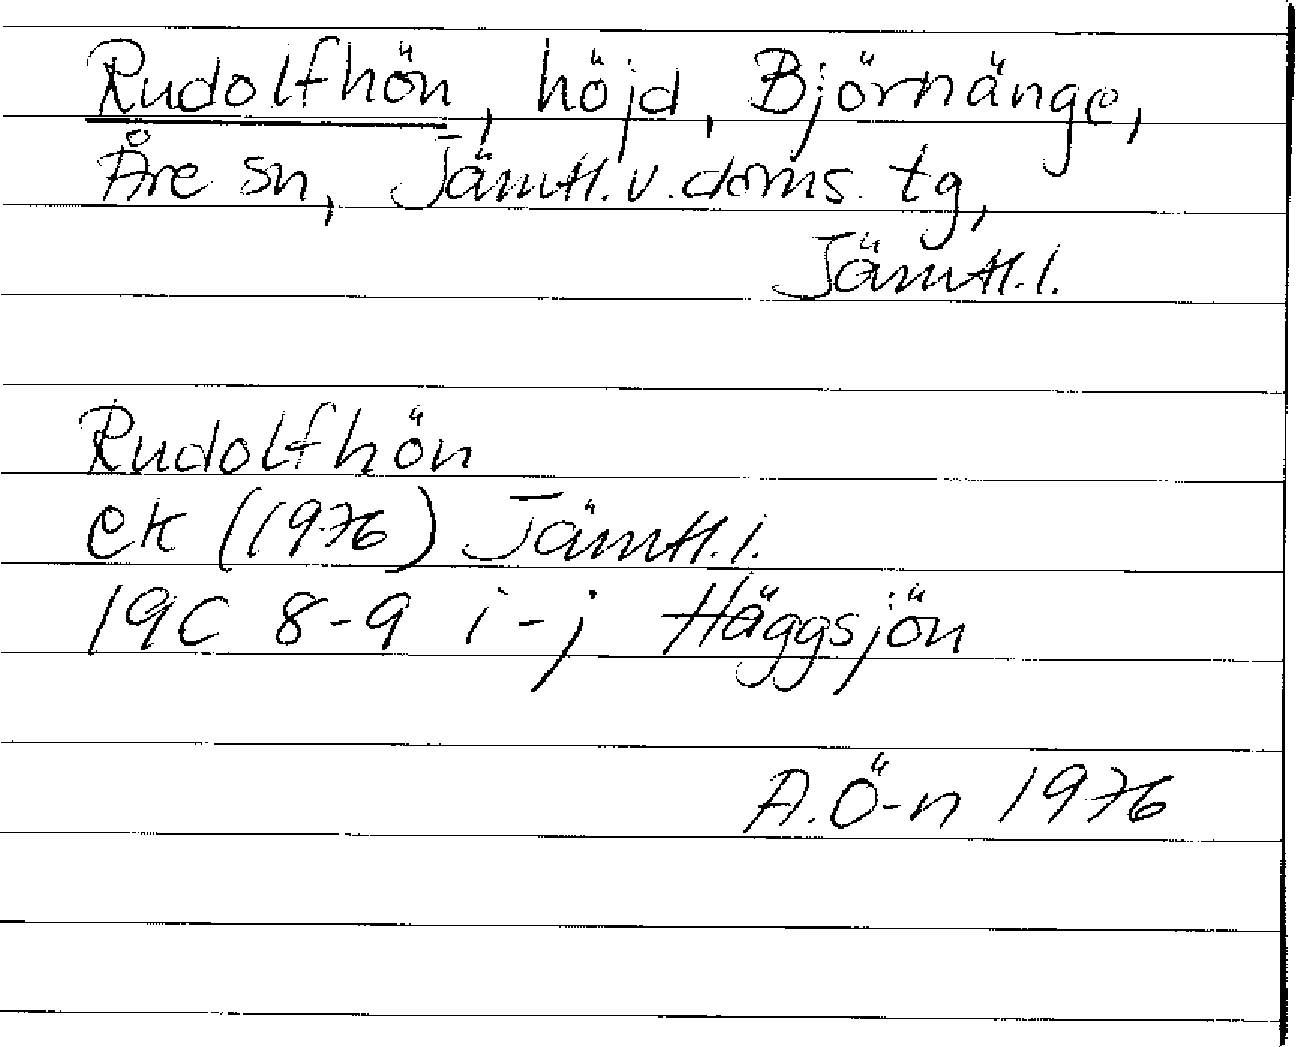 Rudolfhön, höjd, Björnänge,
Åre sn, Jämtl. v. doms. tg,
Jämtl. l.
Rudolfhön
ek (1976) Jämtl. l.
19C 8-9 i-j Häggsjön
A. Ö-n 1976